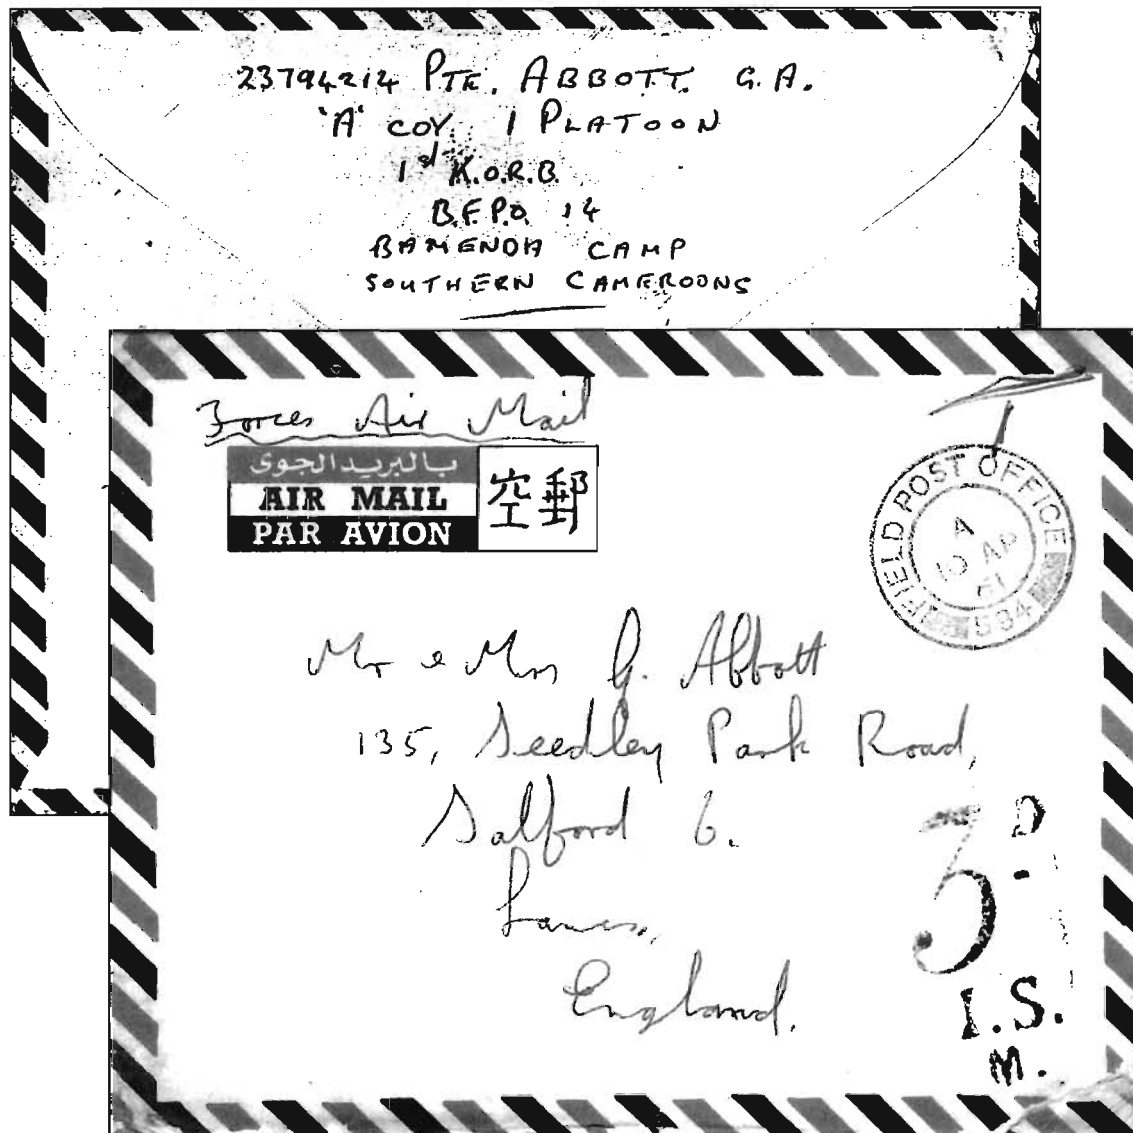 23794214 PTE. ABBOTT. G.A.
'A' COY. 1 PLATOON
1st K.O.R.B.
B.F.P.O. 14
BAMENDA CAMP
SOUTHERN CAMEROONS
Forces Air Mail
بالبريد الجوى
AIR MAIL
PAR AVION
空郵
FIELD POST OFFICE
A
10 AP
61
594
Mr & Mrs G. Abbott
135, Seedley Park Road,
Salford 6.
Lancs,
England.
3D
I.S.
M.